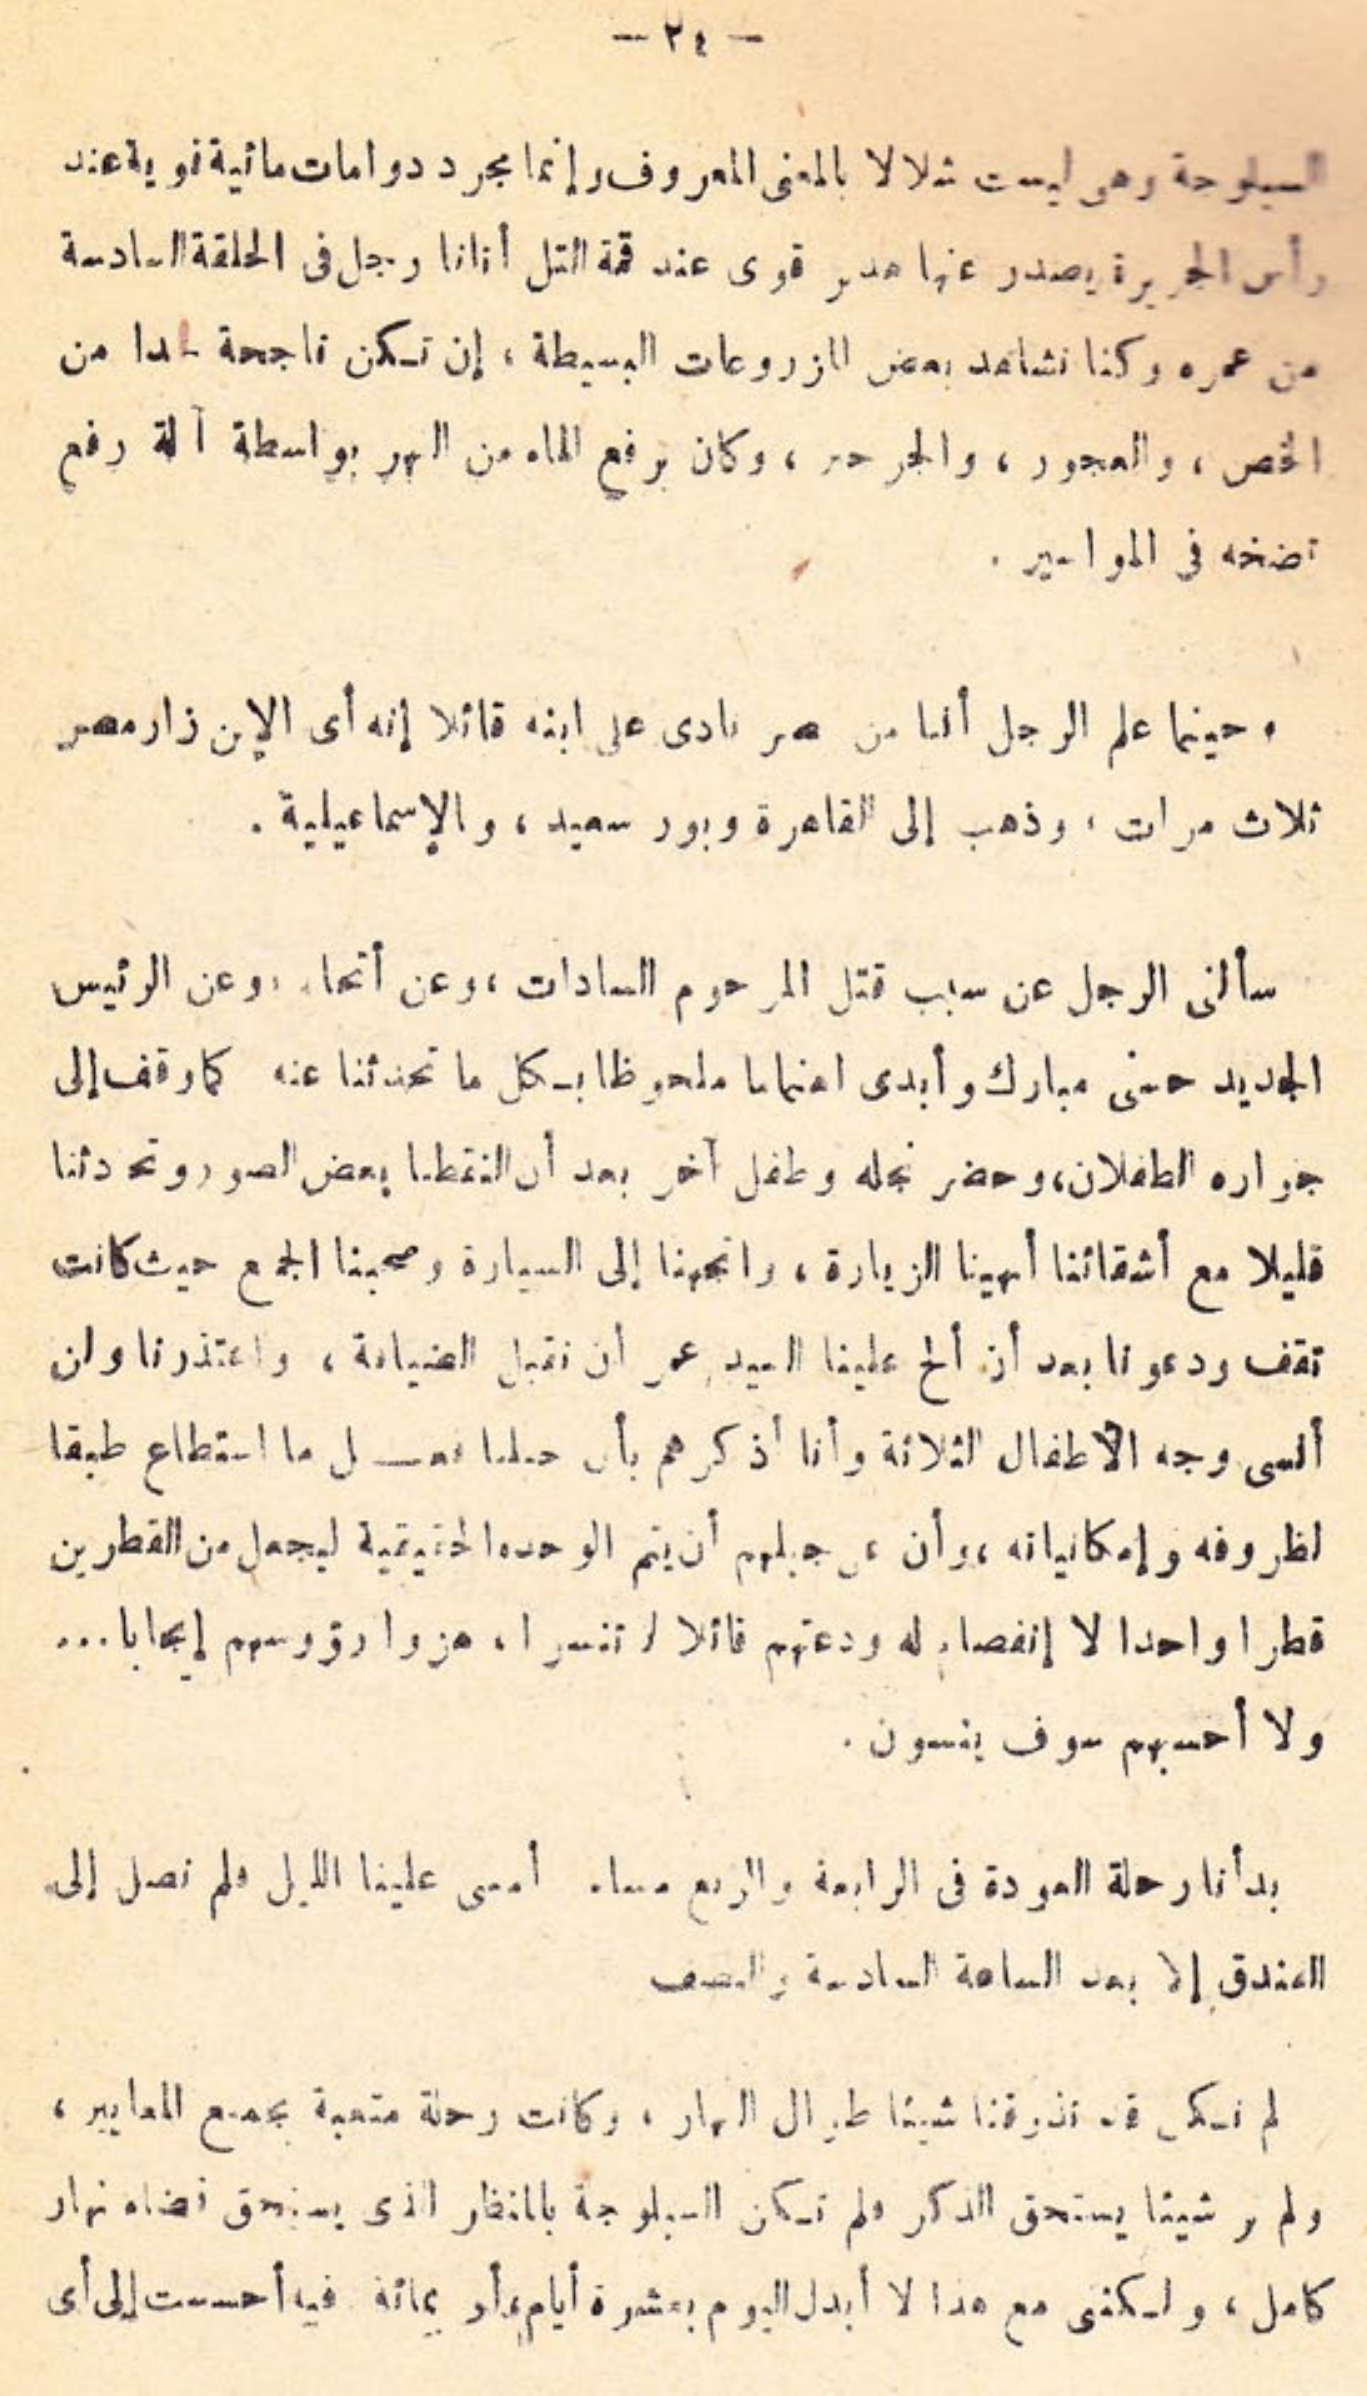 - ٢٤ -
السيلوحة وهى ليست شلالا بالمعنى المعروف وإنما مجرد دوامات مائية قوية عند
رأس الجزيرة يصدر عنها هدير قوى عند قمة التل أتانا رجل فى الحلقة السادسة
من عمره وكنا نشاهد بعض المزروعات البسيطة ، إن تكن ناجحة جدا من
الخص ، والعجور ، والجرجير ، وكان يرفع الماء من النهر بواسطة آلة رفع
تضخه فى المواسير .
وحينما علم الرجل أننا من مصر نادى على ابنه قائلا إنه أى الإبن زار مصر
ثلاث مرات ، وذهب إلى القاهرة وبور سعيد ، والإسماعيلية .
سألنى الرجل عن سبب قتل المرحوم السادات ، وعن أتحاء ، وعن الرئيس
الجديد حسنى مبارك وأبدى اهتماما ملحوظا بكل ما تحدثنا عنه كما وقف إلى
جواره الطفلان ، وحضر نجله وطفل آخر بعد أن التقطنا بعض الصور وتحدثنا
قليلا مع أشقائنا أنهينا الزيارة ، واتجهنا إلى السيارة وصحبنا الجمع حيث كانت
تقف ودعونا بعد أن ألح علينا السيد عمر أن نقبل الضيافة ، واعتذرنا ولن
أنسى وجه الأطفال الثلاثة وأنا أذكرهم بأن جيلنا فعل ما استطاع طبقا
لظروفه وإمكانياته ، وأن على جيلهم أن يتم الوحدة الحقيقية ليجعل من القطرين
قطرا واحدا لا إنفصام له ودعتهم قائلا لا تنسوا ، هزوا رؤوسهم إيجابا ...
ولا أحسبهم سوف ينسون .
بدأنا رحلة العودة فى الرابعة والربع مساء أمسى علينا الليل فلم نصل إلى
الفندق إلا بعد الساعة السادسة والنصف
لم نكن قد تذوقنا شيئا طوال النهار ، وكانت رحلة متعبة بجميع المعايير ،
ولم نر شيئا يستحق الذكر فلم تكن السيلوجة بالمنظر الذى يستحق قضاء نهار
كامل ، ولكننى مع هذا لا أبدل اليوم بعشرة أيام أو بمائة فيه أحسست إلى أى